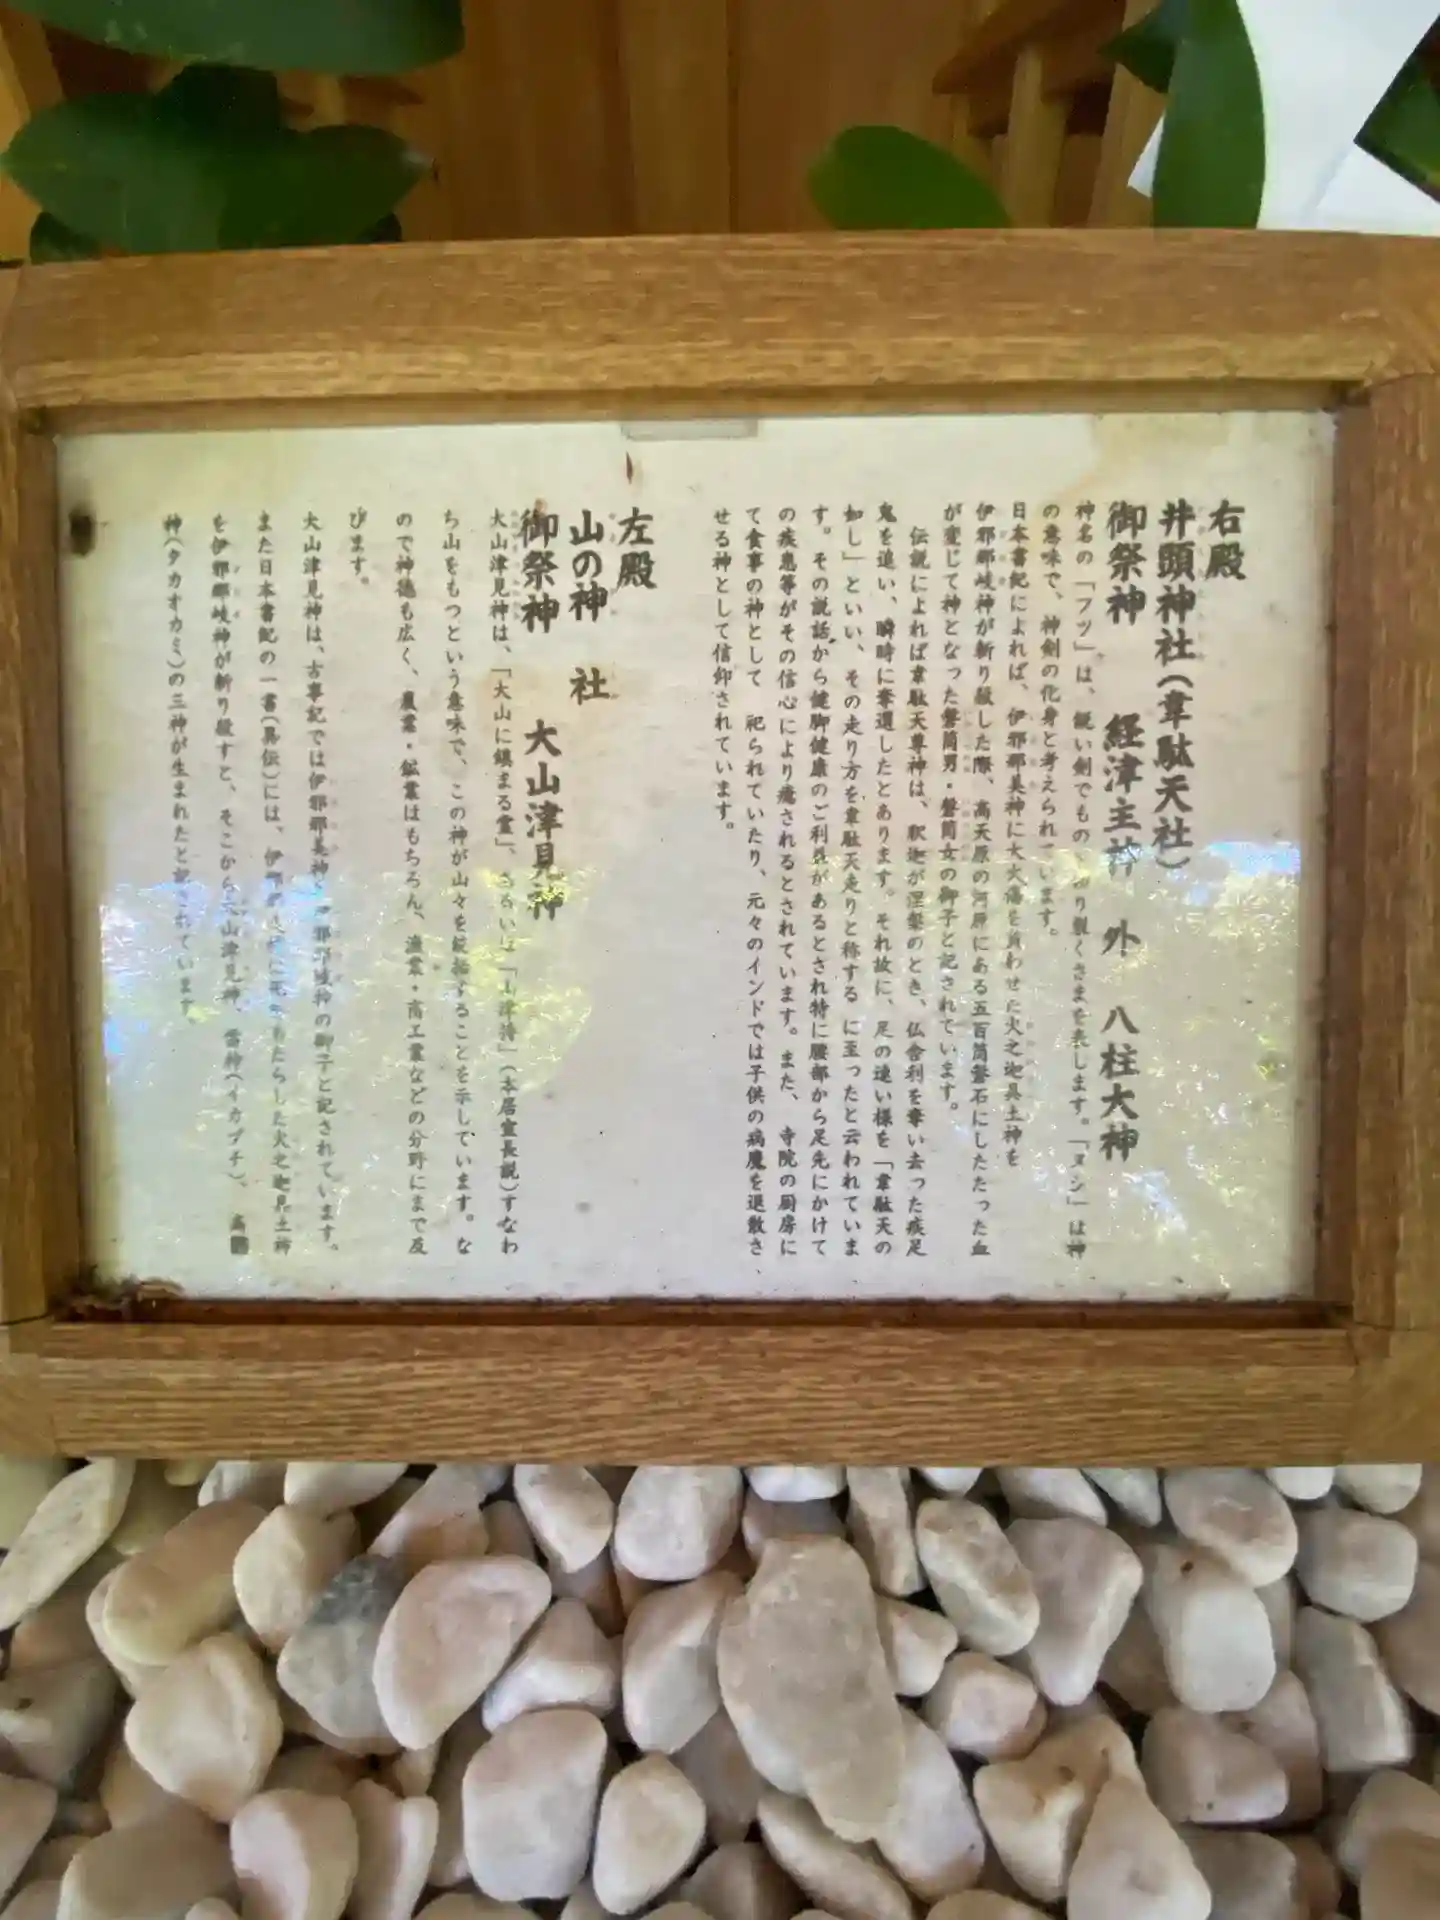 右殿
井頭神社(韋駄天社)
御祭神　経津主神　外　八柱大神
神名の「フツ」は、鋭い剣でもの 切り裂くさまを表します。「ヌシ」は神
の意味で、神剣の化身と考えられています。
日本書紀によれば、伊邪那美神に大火傷を負わせた火之迦具土神を
伊邪那岐神が斬り殺した際、高天原の河原にある五百箇磐石にしたたった血
が変じて神となった磐筒男・磐筒女の御子と記されています。
伝説によれば韋駄天尊神は、釈迦が涅槃のとき、仏舎利を奪い去った疾足
鬼を追い、瞬時に奪還したとあります。それ故に、足の速い様を「韋駄天の
如し」といい、その走り方を韋駄天走りと称する に至ったと云われていま
す。その説話から健脚健康のご利益があるとされ特に腰部から足先にかけて
の疾患等がその信心により癒されるとされています。また、寺院の厨房に
て食事の神として 祀られていたり、元々のインドでは子供の病魔を退散さ
せる神として信仰されています。
左殿
山の神　社
御祭神　大山津見神
大山津見神は、「大山に鎮まる霊」、あるいは「山津持」(本居宣長説)すなわ
ち山をもつという意味で、この神が山々を統括することを示しています。な
ので神徳も広く、農業・鉱業はもちろん、漁業・商工業などの分野にまで及
びます。
大山津見神は、古事記では伊邪那美神 伊邪那岐神の御子と記されています。
また日本書紀の一書(異伝)には、伊邪那 死をもたらした火之迦具土神
を伊邪那岐神が斬り殺すと、そこから大山津見神、雷神(イカヅチ)、高
神(タカオカミ)の三神が生まれたと記されています。